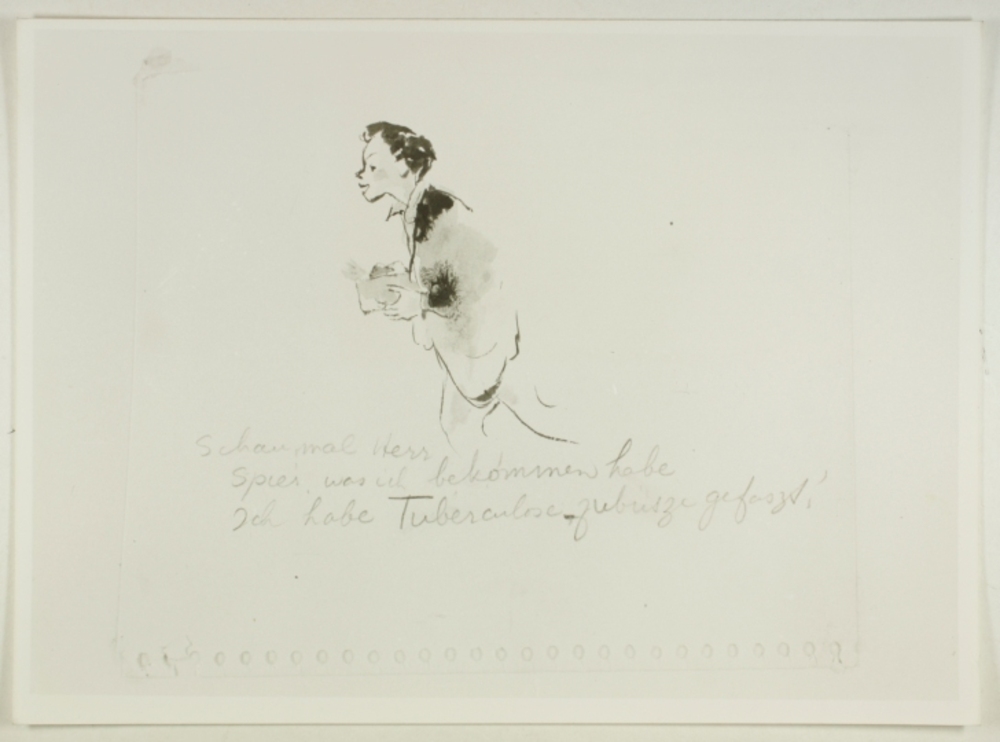 Schau, mal Herr
Spier, was ich bekommen habe
Ich habe Tuberculose-zubusze gefaszt!